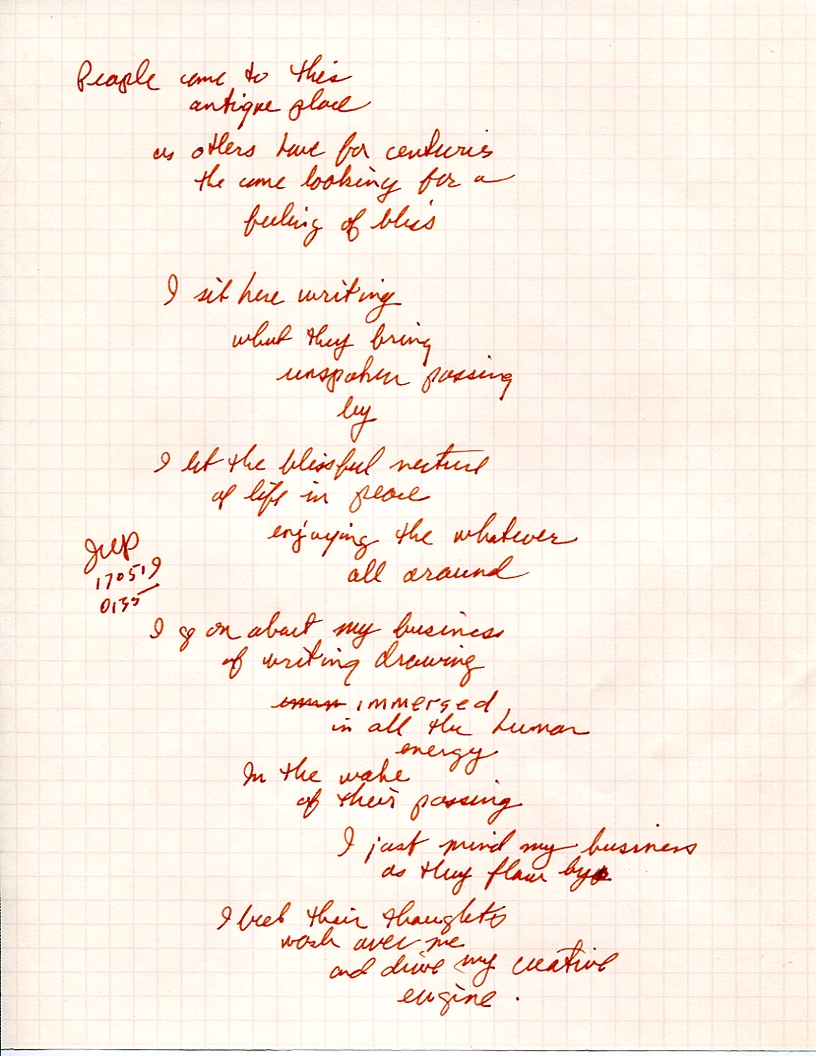 People come to this
antique place
as others have for centuries
the come looking for a
feeling of bliss
I sit here writing
what they bring
unspoken passing
by
I let the blissful necture
of life in peace
enjoying the whatever
all around
JWP
170519
0135
I go on about my business
of writing drawing
immersed
in all the human
energy
In the wake
of their passing
I just mind my business
as they flow by
I feel their thoughts
wash over me
and drive my creative
engine.